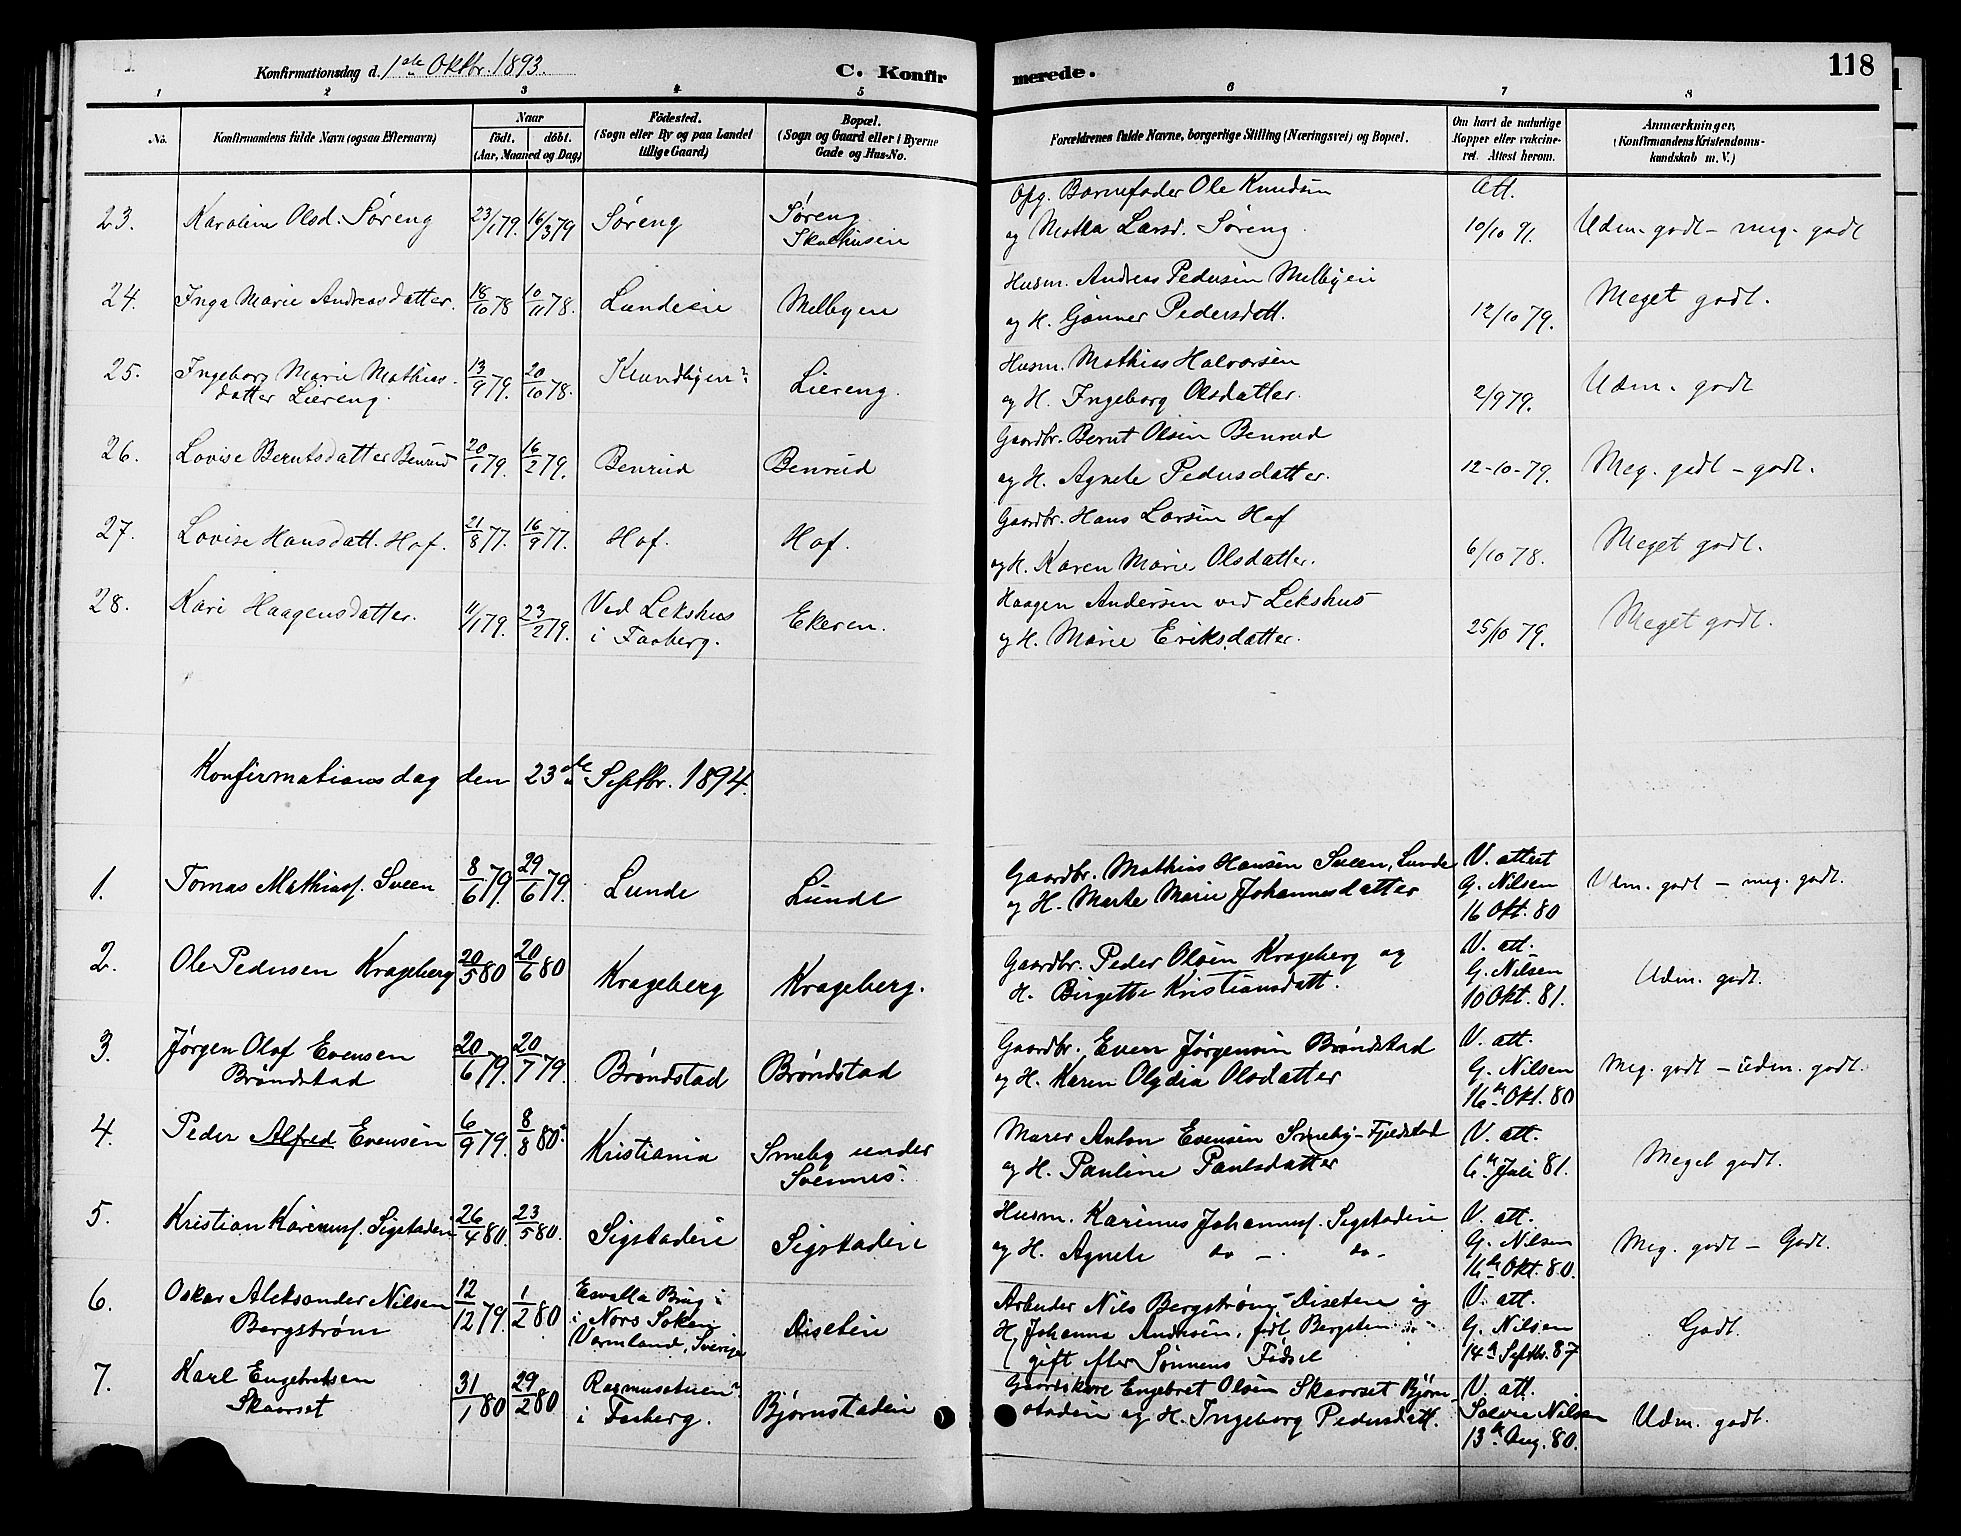 Konfirmationsdag d. 1ste Oktbr. 1893.
C. Konfirmerede.
118
1 2 3 4 5 6 7 8
No. Konfirmandens fulde Navn (ogsaa Efternavn) Naar født. døbt. (Aar, Maaned og Dag) Fødested. (Sogn eller By og paa Landet tillige Gaard) Bopæl. (Sogn og Gaard eller i Byerne Gade og Hus-No. Forældrenes fulde Navne, borgerlige Stilling (Næringsvei) og Bopæl. Om havt de naturlige Kopper eller vakcineret. Attest herom. Anmærkninger, (Konfirmandens Kristendomskundskab m. V.)
23. Karoline Olsd. Søreng 23/1 79. 16/3 79 Søreng Søreng Opg. Barnefader Ole Knudsen og Mattea Larsd. Søreng. Att. 10/10 91. Udm. godt - meg. godt
24. Inga Marie Andreasdatter. 18/10 78 10/11 78. Lundeie Melbyen Husm. Andreas Pedersen Melbyen og H. Gunner Pedersdatt. 12/10 79. Meget godt.
25. Ingeborg Marie Mathiasdatter Liereng. 13/9 79. 20/10 78. Liereng. Husm. Mathias Halvorsen og H. Ingeborg Olsdatter. 2/9 79. Udm. godt
26. Lovise Berntsdatter Benrud 20/1 79. 16/2 79. Benrud Benrud Gaardbr. Bernt Olsen Benrud og H. Agnete Pedersdatter. 12-10-79. Meg. godt - godt.
27. Lovise Hansdatt. Hof. 21/8 77. 16/9 77. Hof. Hof. Gaardbr. Hans Larsen Hof og H. Karen Marie Olsdatter. 6/10 78. Meget godt.
28. Kari Haagensdatter. 11/1 79. 23/2 79. Ved Lekshus i Faaberg. Ekeren. Haagen Andersen ved Lekshus og H. Marie Eriksdatter. 25/10 79. Meget godt.
Konfirmationsdag den 23de Septbr. 1894.
1. Tomas Mathiasf. Sveen 8/6 79. 29/6 79. Lunde Lunde Gaardbr. Mathias Hansen Sveen, Lunde og H. Marte Marie Johannesdatter V. attest G. Nilsen 16 Okt. 80 Udm. godt - meg. godt.
2. Ole Pedersen Krageberg 20/5 80 20/6 80 Krageberg Krageberg. Gaardbr. Peder Olsen Krageberg og H. Birgette Kristiansdatt. V. att. G. Nilsen 10 Okt. 81. Udm. godt.
3. Jørgen Olaf Evensen Brøndstad 20/6 79. 20/7 79. Brøndstad Brøndstad Gaardbr. Even Jørgensen Brøndstad og H. Karen Olydia Olsdatter V. att. G. Nilsen 16de Okt. 80 Meg. godt - udm. godt.
4. Peder Alfred Evensen 6/9 79. 8/8 80. Kristiania Smeby under Svennes. Murer Anton Evensen Smeby-Fjeldstad og H. Pauline Paulsdatter V. att. 6te Juli 81. Meget godt.
5. Kristian Karinusf. Sigstadeie 26/4 80. 23/5 80. Sigstadeie Sigstadeie Husm. Karinus Johannesf. Sigstadeie og H. Agnete do - do - V. att. G. Nilsen 16de Okt. 80. Meg. godt - Godt.
6. Oskar Aleksander Nilsen Bergstrøm 12/12 79. 1/2 80 Brug i Nors Soken Vermland, Sverige Diseteie Arbeider Nils Bergstrøm - Diseteie og H. Johanna Andersen, født Bergsten gift efter Sønnens Fødsel V. att. G. Nilsen 14de Septbr. 87 Godt.
7. Karl Engebretsen Skaarset 31/1 80 29/2 80 Rasmusstuen i Faaberg. Bjørnstadeie Engebret Olsen Skaarset Bjørnstadeie og H. Ingeborg Pedersdatt. V. att. Nilsen 13de Aug. 80. Udm. godt.